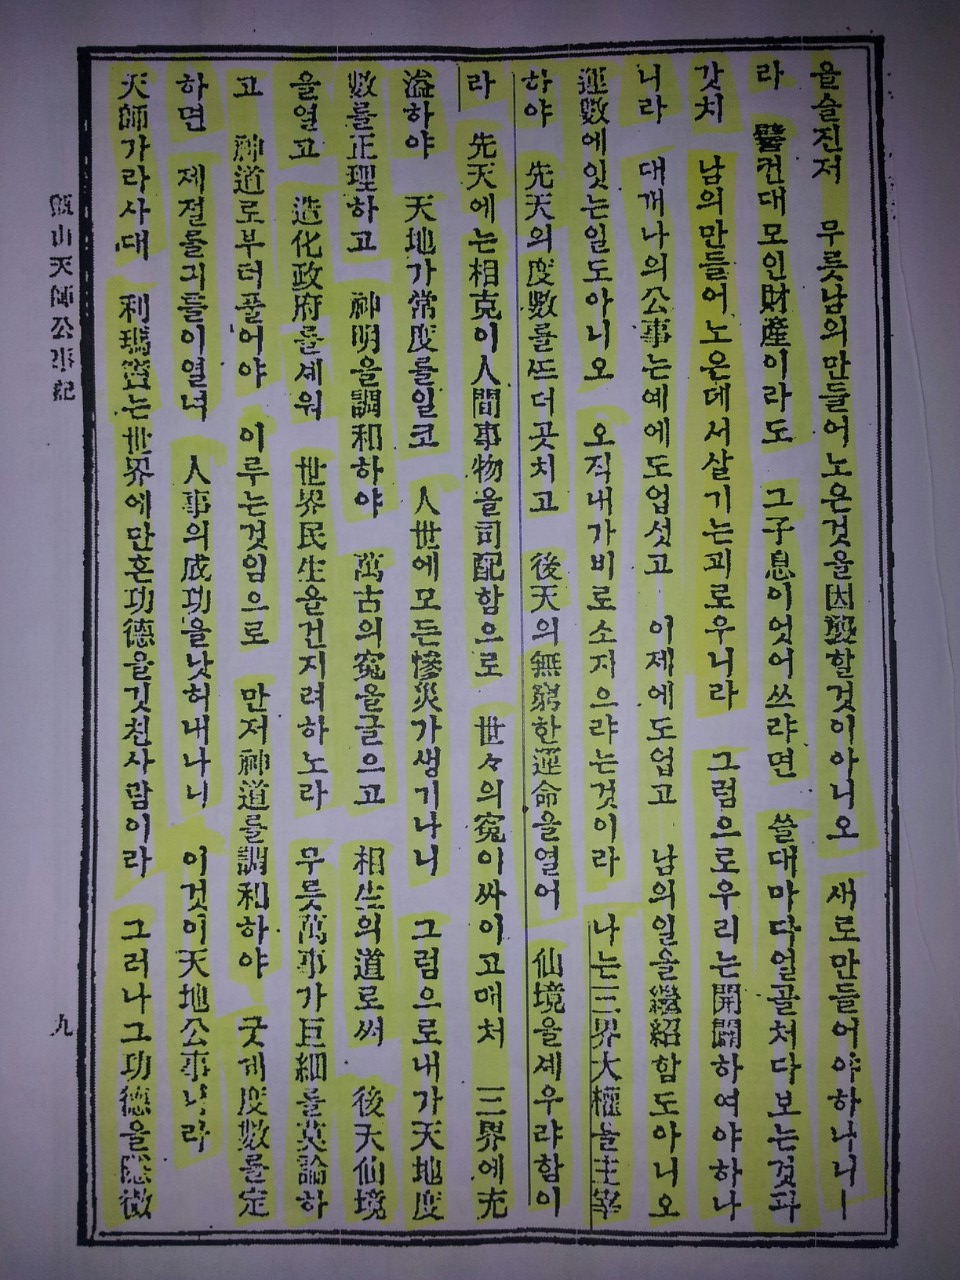 을슬진저 무릇남의만들어노은것을因襲할것이아니오 새로만들어야하나니ㅣ
라 譬컨대모인財産이라도 그子息이엇어쓰랴면 쓸대마다얼골처다보는것과
갓치 남의만들어노은데서살기는괴로우니라 그럼으로우리는開闢하여야하나
니라 대개나의公事는예에도업섯고 이제에도업고 남의일을繼紹함도아니오
運數에잇는일도아니오 오직내가비로소지으랴는것이라 나는三界大權을主宰
하야 先天의度數를뜨더곳치고 後天의無窮한運命을열어 仙境을세우랴함이
라 先天에는相克이人間事物을司配함으로 世々의寃이싸이고매처 三界에充
溢하야 天地가常度를일코 人世에모든慘災가생기나니 그럼으로내가天地度
數를正理하고 神明을調和하야 萬古의寃을글으고 相生의道로써 後天仙境
을열고 造化政府를세워 世界民生을건지려하노라 무릇萬事가巨細를莫論하
고 神道로부터풀어야 이루는것임으로 만저神道를調和하야 굿게度數를定
하면 제절롤긔틀이열녀 人事의成功을낫허내나니 이것이天地公事니라
天師가라사대 利瑪竇는世界에만흔功德을깃친사람이라 그러나그功德을隱微
甑山天師公事記
九